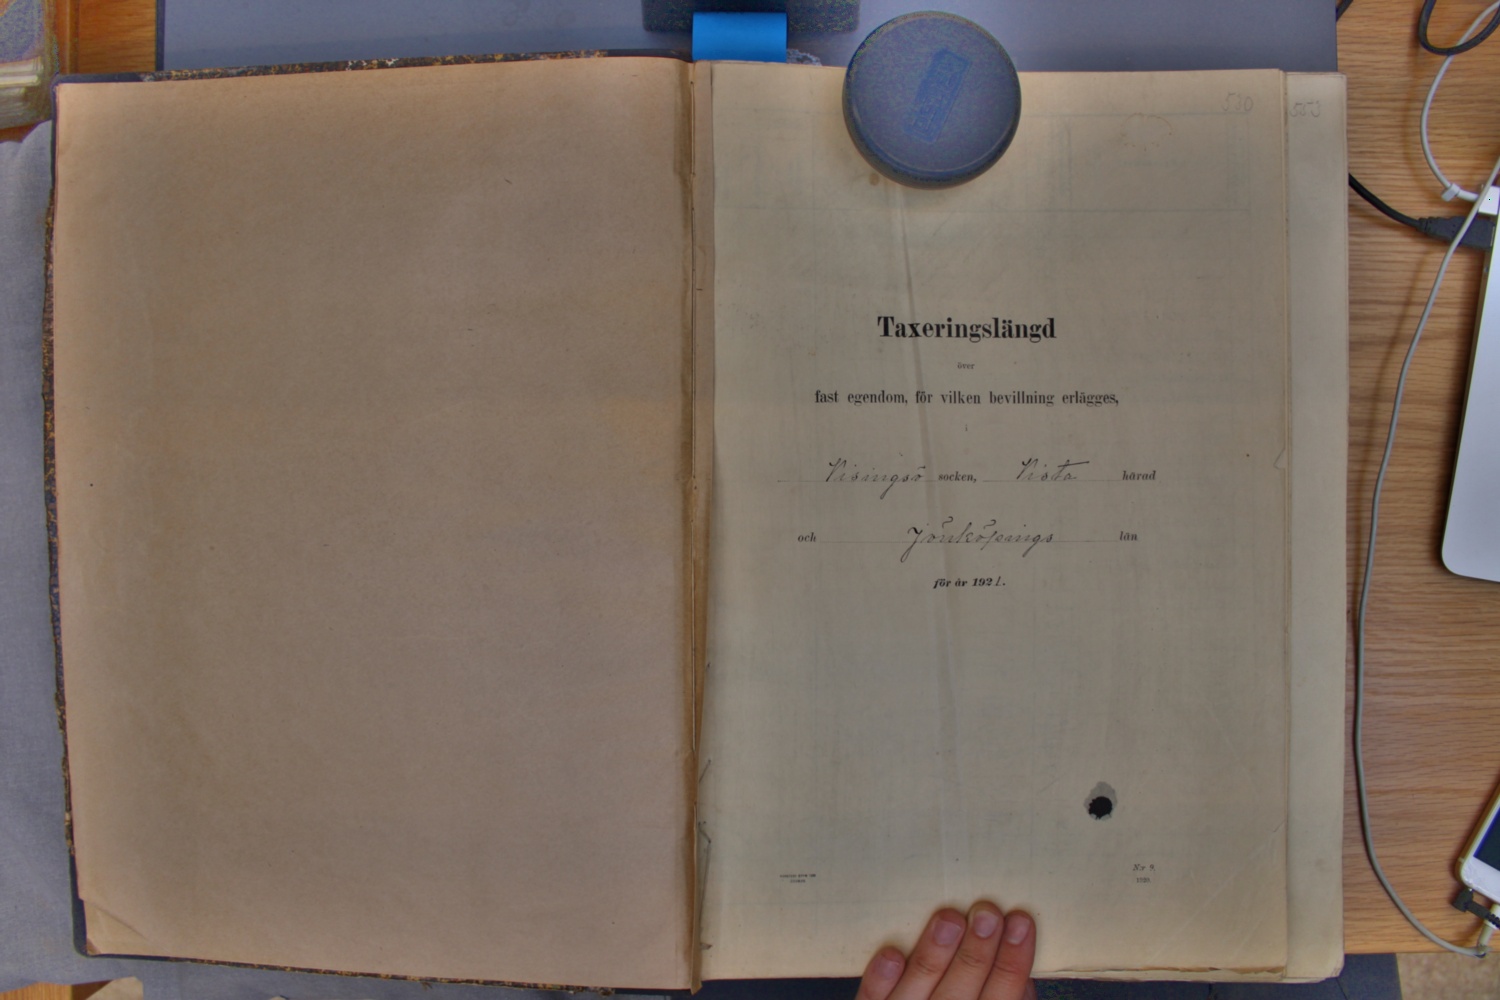 530
553
Taxeringslängd
över
fast egendom, för vilken bevillning erlägges,
i
Visingsö socken, Vista härad
och Jönköpings län
för år 1921.
N:r 9.